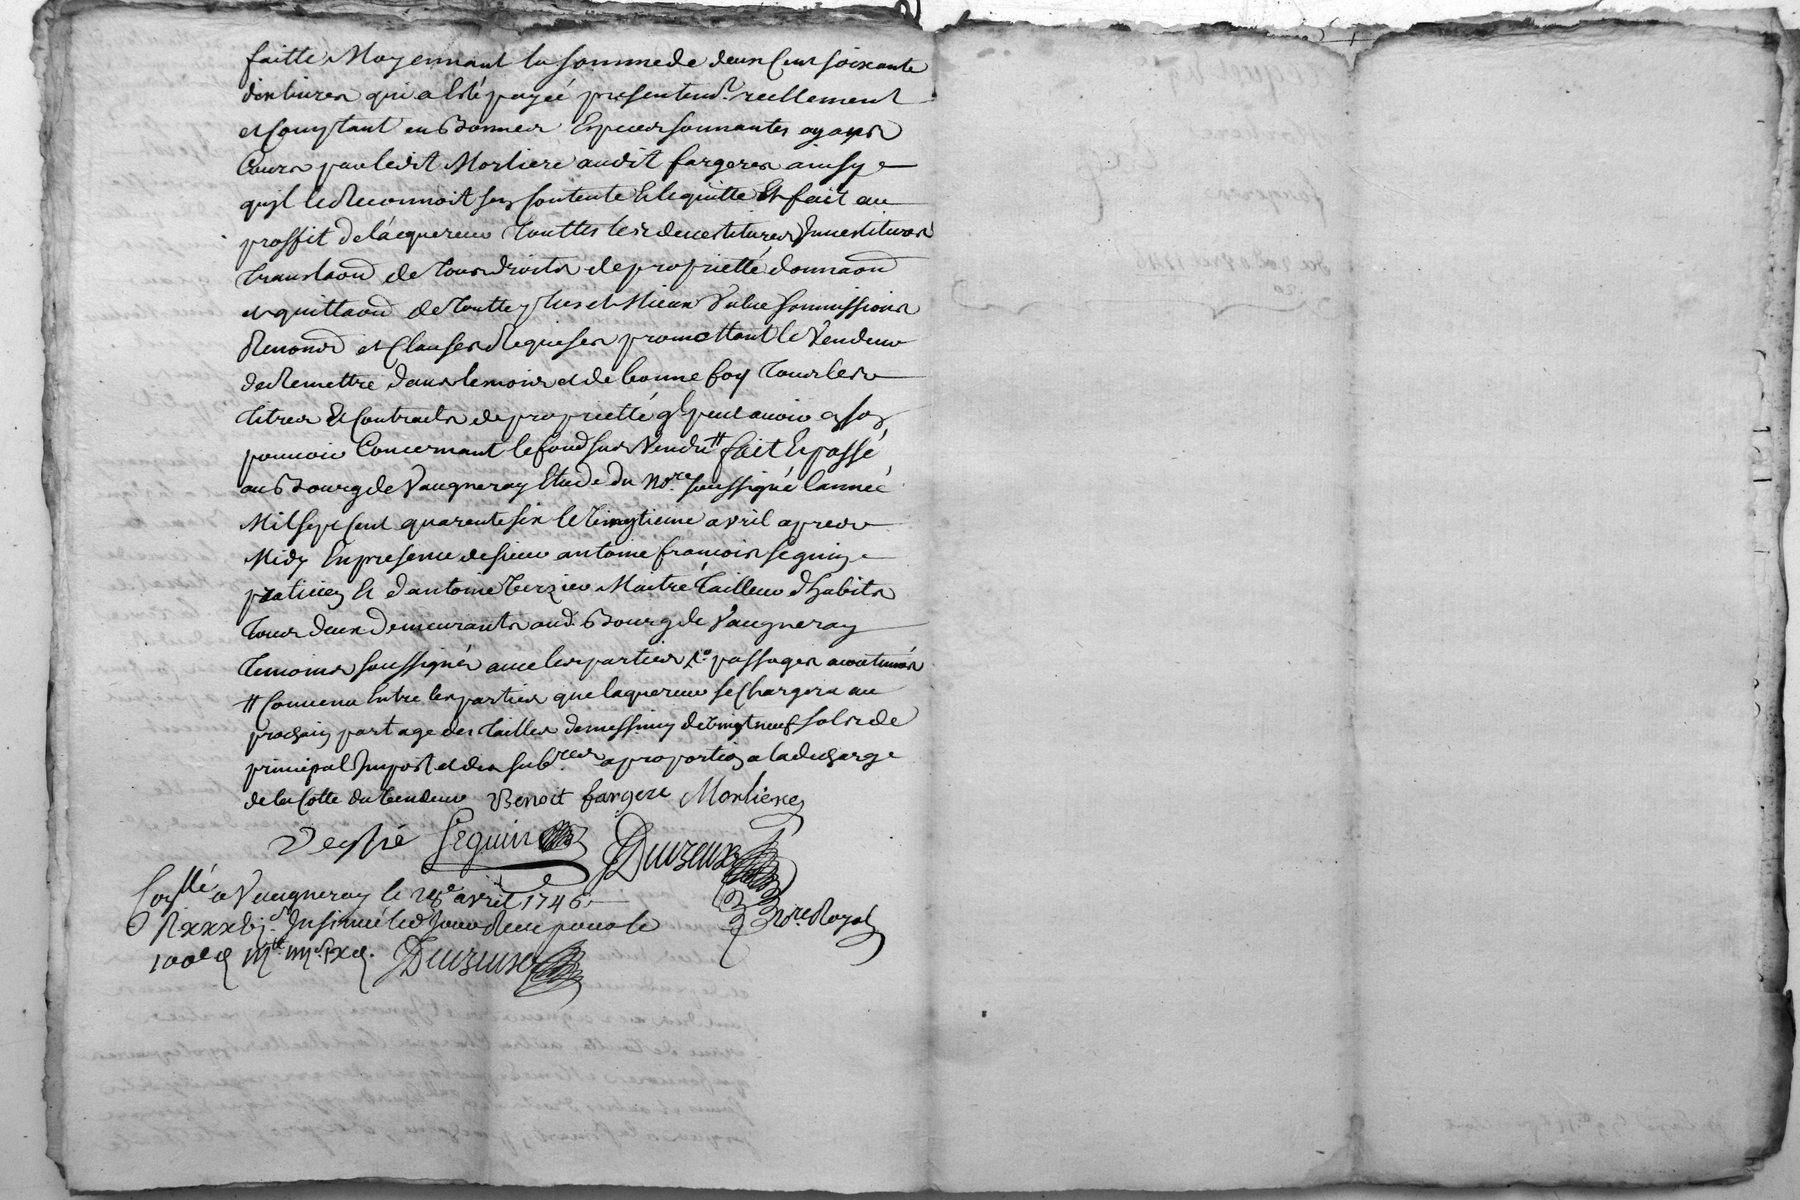 faitte Moyennant la somme de deux Cent soixante
dix livres qui a Esté payée presentem.t reellement
et Comptant en Bonnes Especes sonnantes ayants
Cours par ledit Morliere audit fargeres ainsy
qujl le Reconnoit sen Contente Et le quitte Et fait au
proffit de lacquereur Touttes les devestitures Jnvestitures
de Tous droits de proprietté
et de Toutte plus et Mieux Value sommissions
et Clauses Requises promettant le Vendeur
de Remettre dans le mois et de bonne foy Tous les
titres Et Contracts de proprietté ql peut avoir En son
pouvoir Concernant le fond sus Vendu # fait Et passé
au Bourg de Vaugneray Etude du No.re soussigné Lannée
Mil sept Cent quarente six le Vingtieme avril apres
Midy En presence de sieur antoine françois seguin
praticien Et d'antoine Terzieu Maitre Tailleur d'habits
Tous deux Demeurants aud. Bourg de Vaugneray
Temoins soussignés avec les parties passages acoutumés
# Convenu Entre les parties que laquereur se Chargera au
prochain partage des Tailles de messimy de Vingt neuf sols de
principal Jmpost et des a proportion a la decharge
de la Cotte du Vendeur Benoit fargere Morliere
Seguin Duzeux
No.re Royal
Con.llé a Vaugneray le avril 1746
R xxxvj.s Jnsinué led Jour Reçu pour le
100e d Duzeux